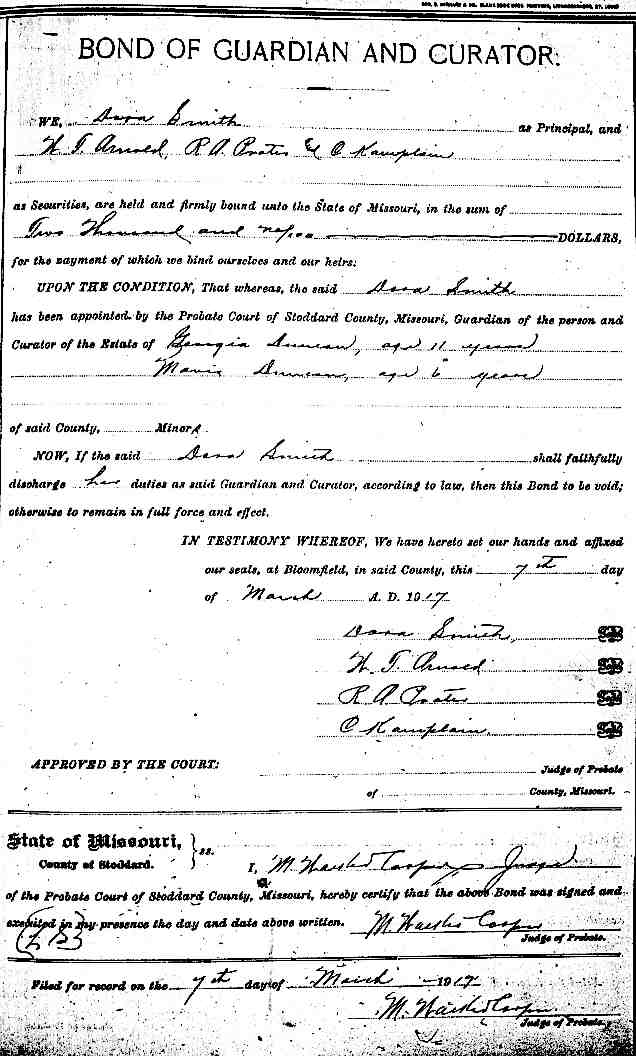 BOND OF GUARDIAN AND CURATOR.
WE, Dora Smith as Principal, and
H. T. Arnold, R A & C Kamplain
as Securities, are held and firmly bound unto the State of Missouri, in the sum of
Two Thousand and no/100 DOLLARS,
for the payment of which we bind ourselves and our heirs:
UPON THE CONDITION, That whereas, the said Dora Smith
has been appointed by the Probate Court of Stoddard County, Missouri, Guardian of the person and
Curator of the Estate of Georgia Duncan, age 11 years
Duncan, age 6 years
of said County, Minors.
NOW, If the said Dora Smith shall faithfully
discharge her duties as said Guardian and Curator, according to law, then this Bond to be void;
otherwise to remain in full force and effect.
IN TESTIMONY WHEREOF, We have hereto set our hands and affixed
our seals, at Bloomfield, in said County, this 7th day
of March A. D. 1917
Dora Smith
H. T. Arnold
R A
C Kamplain
APPROVED BY THE COURT:
Judge of Probate
of County, Missouri.
State of Missouri,
County of Stoddard. } ss.
I, M. Cooper Judge
of the Probate Court of Stoddard County, Missouri, hereby certify that the above Bond was signed and
executed in my presence the day and date above written. M. Cooper
Judge of Probate.
Filed for record on the 7th day of March 1917
M. Cooper
Judge of Probate.